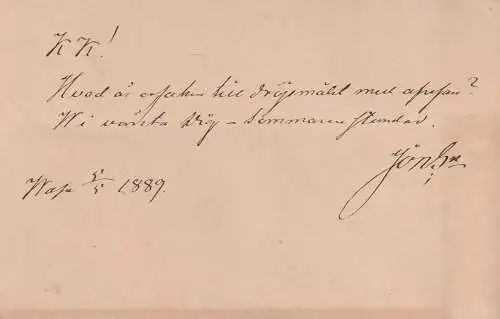 K K!
Hvad är orsaken till dröjsmålet med affären?
Wi vänta Dig – Sommaren stundar.
Wasa 5/5 1889.